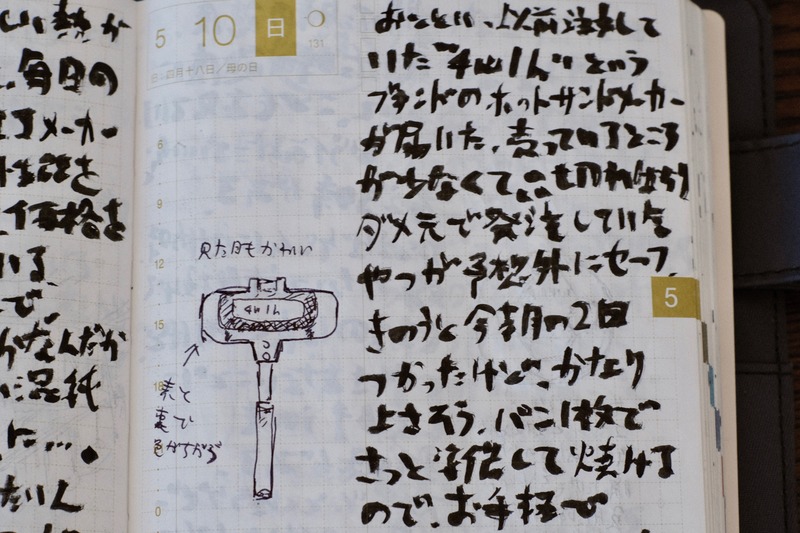 い熱が
毎日の
メーカー
性能を
価格を
いる
で、
がなんだか
に混純
た…。
たいん
5 10 日
131
日 四月十八日/母の日
6
9
12
15
18
0
見た目もかわいい
4w1h
表と
裏で
色がちがう
おととい、以前注文して
いた"4w1h"という
ブランドのホットサンドメーカー
が届いた。売っているところ
が少なくて、どこも売り切れ
ダメ元で発注していた
やつが予想外にセーフ。
きのうと今朝の2回
つかったけど、かなり
よさそう。パン1枚で
さっと準備して焼ける
ので、お手軽で
5